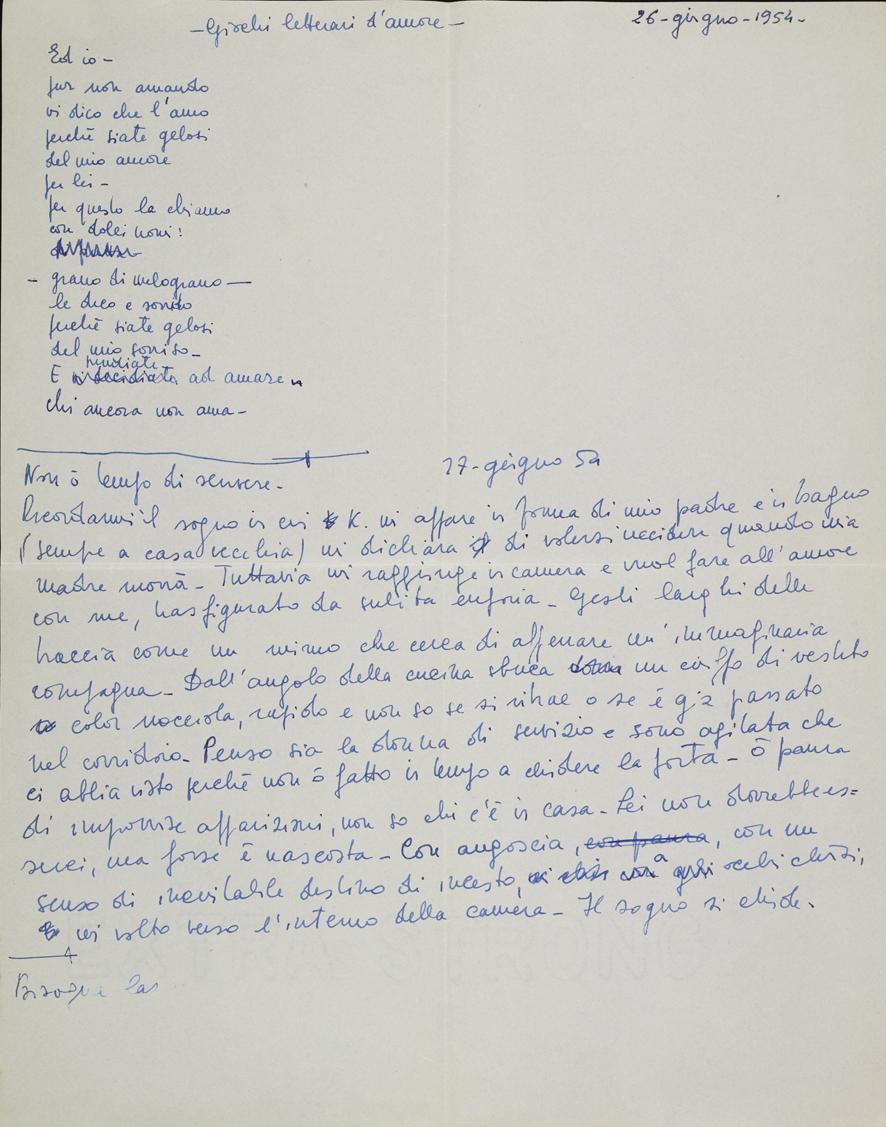 - Giochi letterari d'amore -
26 - giugno - 1954 -
Ed io -
pur non amando
vi dico che l'amo
perchè siate gelosi
del mio amore
per lei -
per questo la chiamo
con dolci nomi:
- grano di melograno -
le dico e sorrido
perchè siate gelosi
del mio sorriso -
E ad amare
chi ancora non ama -
27 - giugno 54
Non ò tempo di scrivere -
Ricordarmi il sogno in cui K. mi appare in forma di mio padre e in bagno
(sempre a casa vecchia) mi dichiara di volersi uccidere quando mia
madre morrà - Tuttavia mi raggiunge in camera e vuol fare all'amore
con me, trasfigurato da subita euforia - Gesti larghi delle
braccia come un mimo che cerca di afferrare un'immaginaria
compagna - Dall'angolo della cucina sbuca un ciuffo di vestito
color nocciola, rapido e non so se si ritrae o se è già passato
nel corridoio - Penso sia la donna di servizio e sono agitata che
ci abbia visto perchè non ò fatto in tempo a chiudere la porta - ò paura
di improvvise apparizioni, non so chi c'è in casa - Lei non dovrebbe es=
serci, ma forse è nascosta - Con angoscia, con paura, con un
senso di inevitabile destino di incesto, gli occhi chiusi,
mi volto verso l'interno della camera - Il sogno si chiude.
Bisogna las